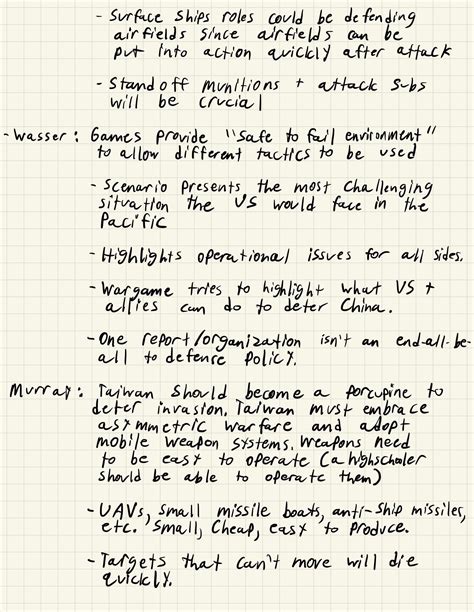 - Surface Ships roles could be defending
airfields since airfields can be
put into action quickly after attack
- Standoff munitions + attack subs
will be crucial
- Wasser: Games provide "safe to fail environment"
to allow different tactics to be used
- Scenario presents the most challenging
situation the US would face in the
Pacific
- Highlights operational issues for all sides.
- Wargame tries to highlight what US +
allies can do to deter China.
- One report/organization isn't an end-all-be-
all to defense policy.
Murray: Taiwan should become a porcupine to
deter invasion. Taiwan must embrace
asymmetric warfare and adopt
mobile weapon systems. Weapons need
to be easy to operate (a highschooler
should be able to operate them)
- UAVs, small missile boats, anti-ship missiles,
etc. small, cheap, easy to produce.
- Targets that can't move will die
quickly.